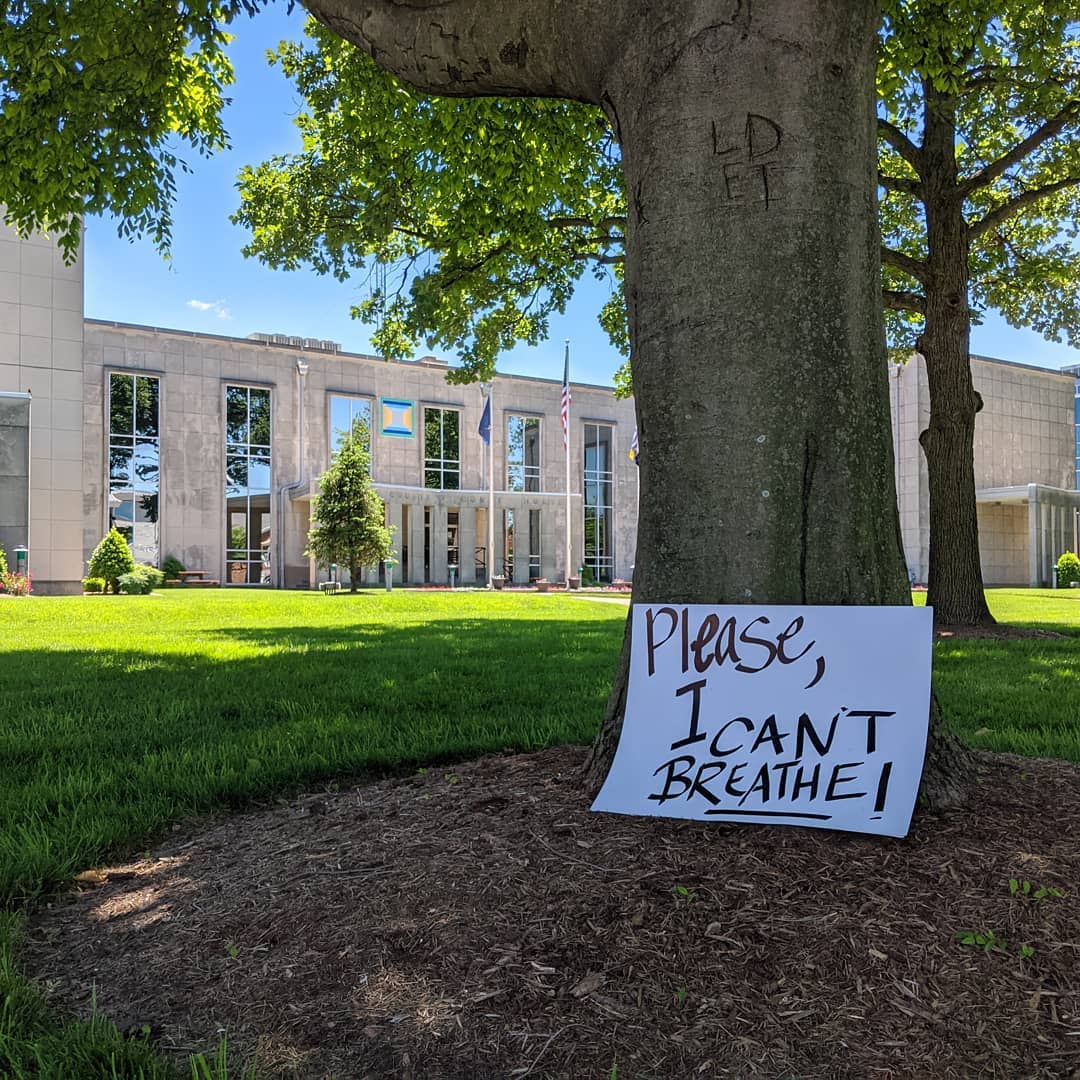 LD
ET
Please,
I CAN'T
BREATHE!